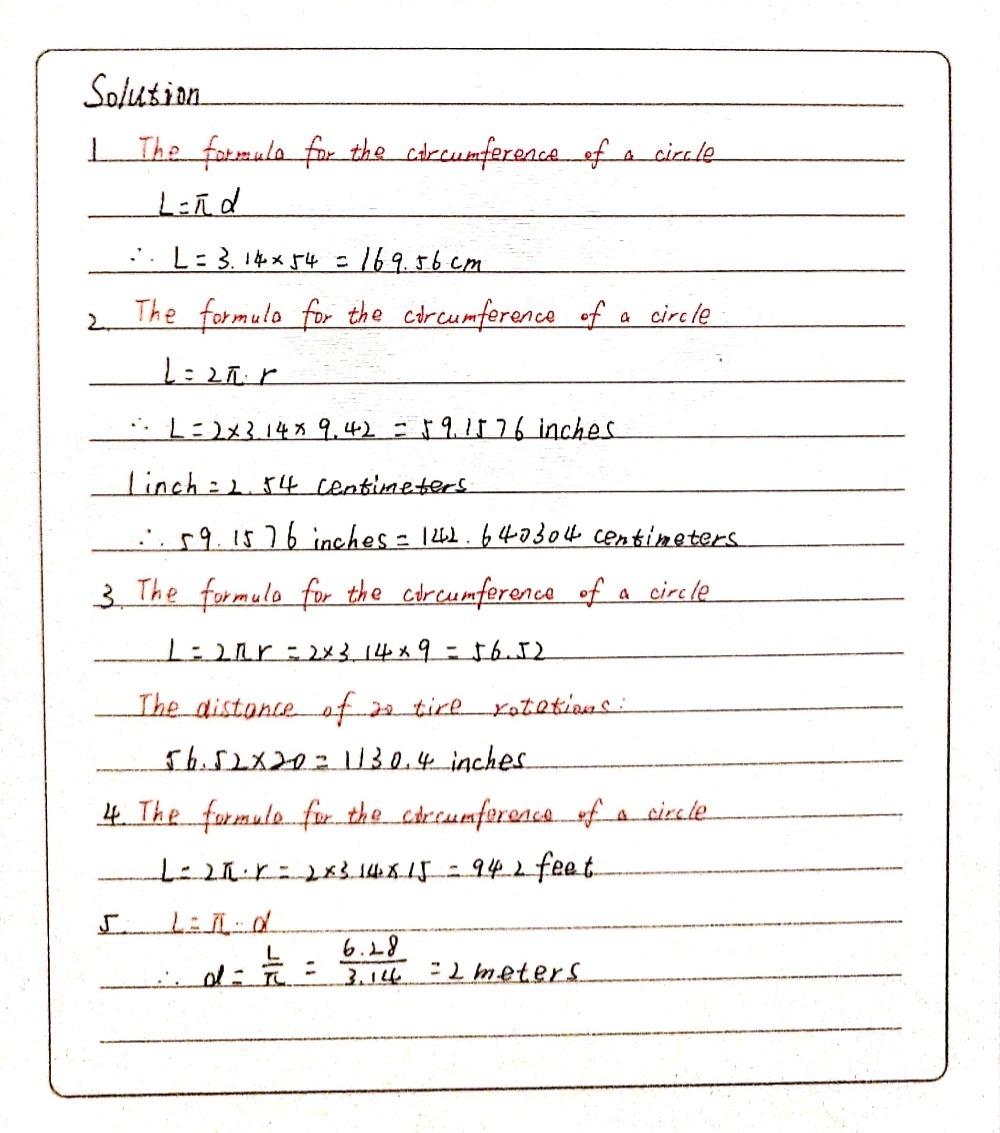 Solution
1 The formula for the circumference of a circle
L=πd
∴ L=3.14×54=169.56cm
2. The formula for the circumference of a circle
L=2π·r
∴ L=2×3.14×9.42=59.1576 inches
1 inch=2.54 centimeters
∴ 59.1576 inches=142.640304 centimeters
3. The formula for the circumference of a circle
L=2πr=2×3.14×9=56.52
The distance of 20 tire rotations:
56.52×20=1130.4 inches
4. The formula for the circumference of a circle
L=2π·r=2×3.14×15=94.2 feet
5. L=π·d
∴ d=L/π=6.28/3.14=2 meters